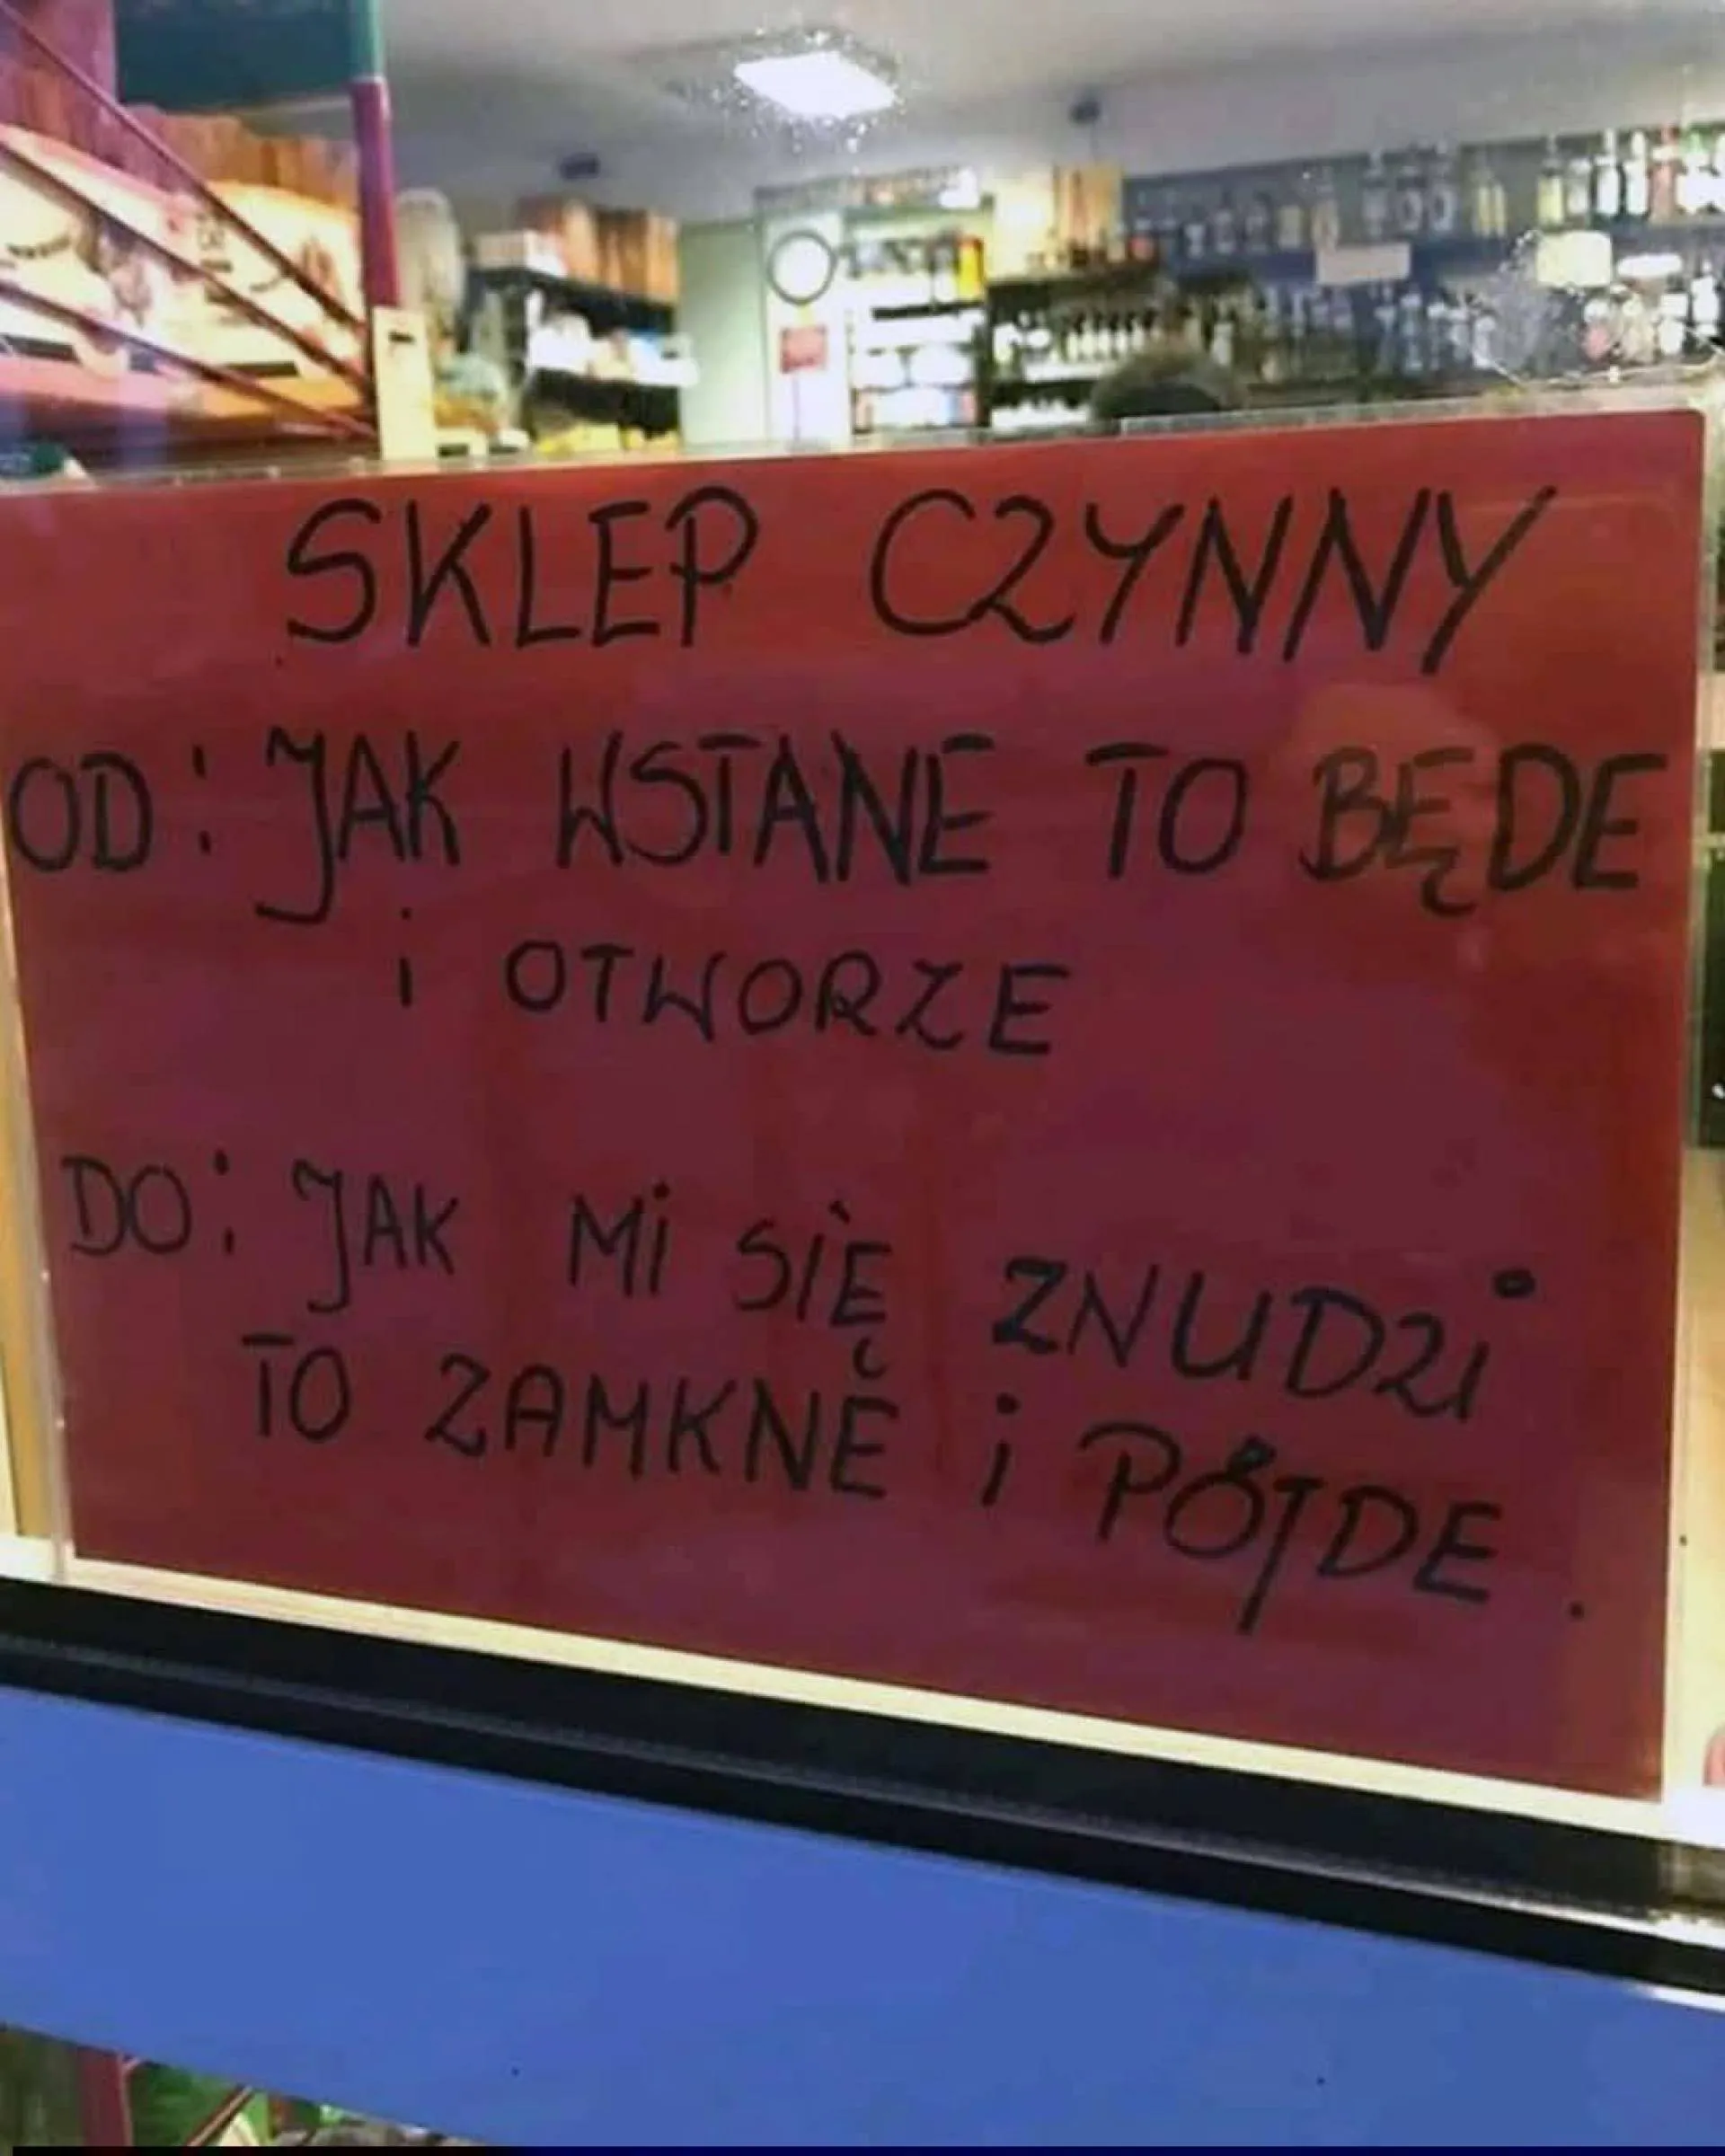 SKLEP CZYNNY
OD: JAK WSTANE TO BĘDE
i OTWORZE
DO: JAK Mi SIĘ ZNUDZi
TO ZAMKNE i PÓJDE.